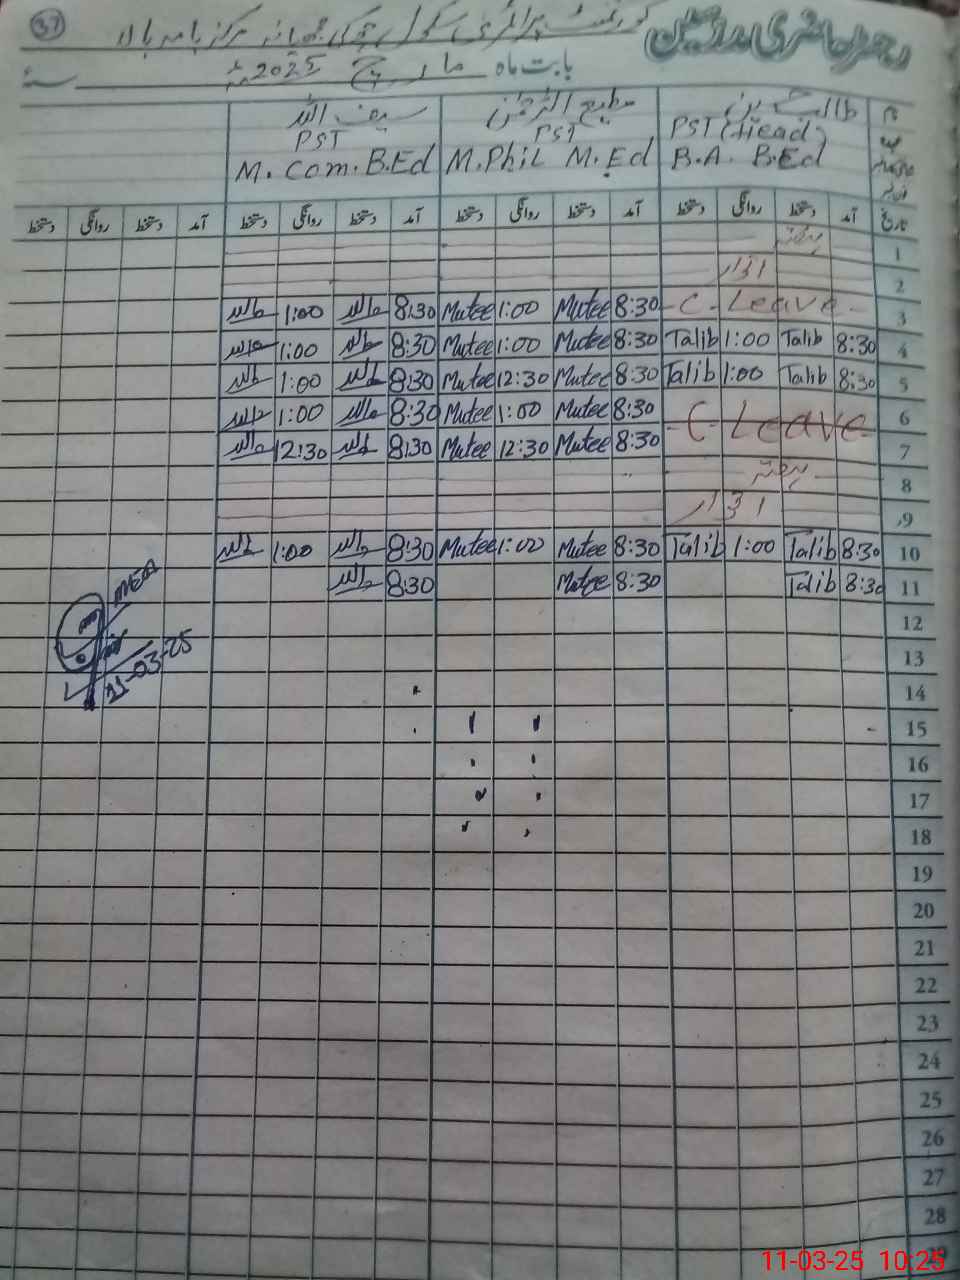 37
گورنمنٹ پرائمری سکول
مرکز بامہ بالا
رجسٹر حاضری مدرسین
بابت ماہ مارچ 2025ء
طالب حسین مطیع الرحمٰن سیف اللہ
PST (Head) PST PST
B.A. B.Ed M.Phil M.Ed M.Com.B.Ed
تاریخ آمد دستخط روانگی دستخط آمد دستخط روانگی دستخط آمد دستخط روانگی دستخط آمد دستخط روانگی دستخط
1 ہفتہ
2 اتوار
1:00 8:30 Mutee 1:00 Mutee 8:30 - C - Leave - 3
1:00 8:30 Mutee 1:00 Mutee 8:30 Talib 1:00 Talib 8:30 4
1:00 8:30 Mutee 12:30 Mutee 8:30 Talib 1:00 Talib 8:30 5
1:00 8:30 Mutee 1:00 Mutee 8:30 - C - Leave - 6
12:30 8:30 Mutee 12:30 Mutee 8:30 7
8 ہفتہ
9 اتوار
1:00 8:30 Mutee 1:00 Mutee 8:30 Talib 1:00 Talib 8:30 10
8:30 Mutee 8:30 Talib 8:30 11
12
13
14
15
16
17
18
19
20
21
22
23
24
25
26
27
28
MEA
11-03-25
11-03-25 10:25